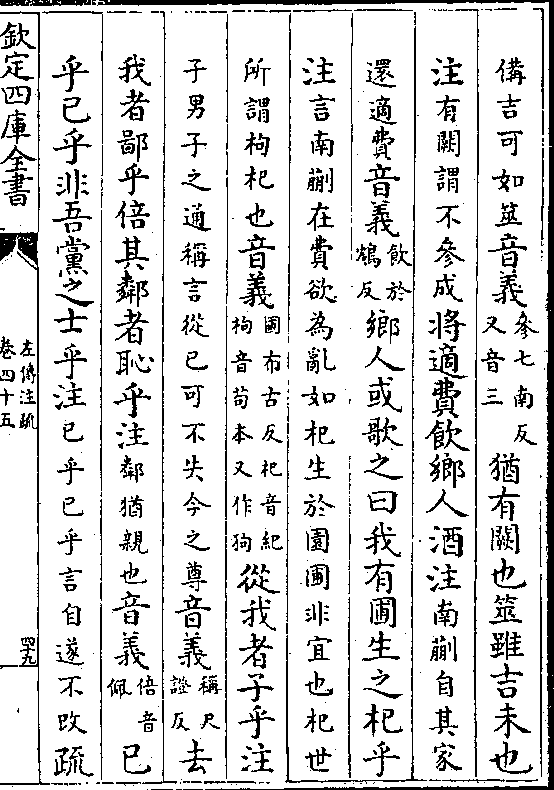 備吉可如筮音義參七南反又音三猶有闕也筮雖吉未也
注有闕謂不參成將適費飲鄉人酒注南蒯自其家
還適費音義飲於鴆反鄉人或歌之曰我有圃生之杞乎
注言南蒯在費欲為亂如杞生於園圃非宜也杞世
所謂枸杞也音義圃布古反杞音紀枸音苟本又作狗從我者子乎注
子男子之通稱言從已可不失今之尊音義稱尺證反去
我者鄙乎倍其鄰者恥乎注鄰猶親也音義倍音佩已
乎已乎非吾黨之士乎注已乎已乎言自遂不改疏
欽定四庫全書
左傳注疏
卷四十五
四九